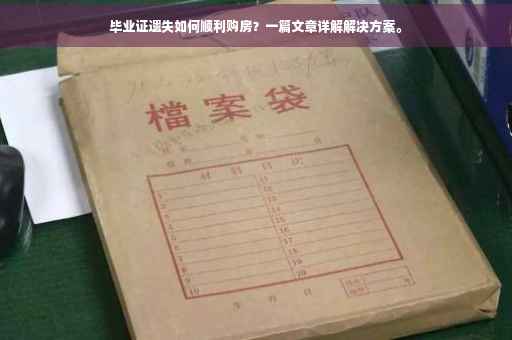 毕业证遗失如何顺利购房？一篇文章详解解决方案。
檔案袋
材料目次
1 11
2 12
3 13
4 14
5 15
6 16
7 17
8 18
9 19
10 20
年 月 日